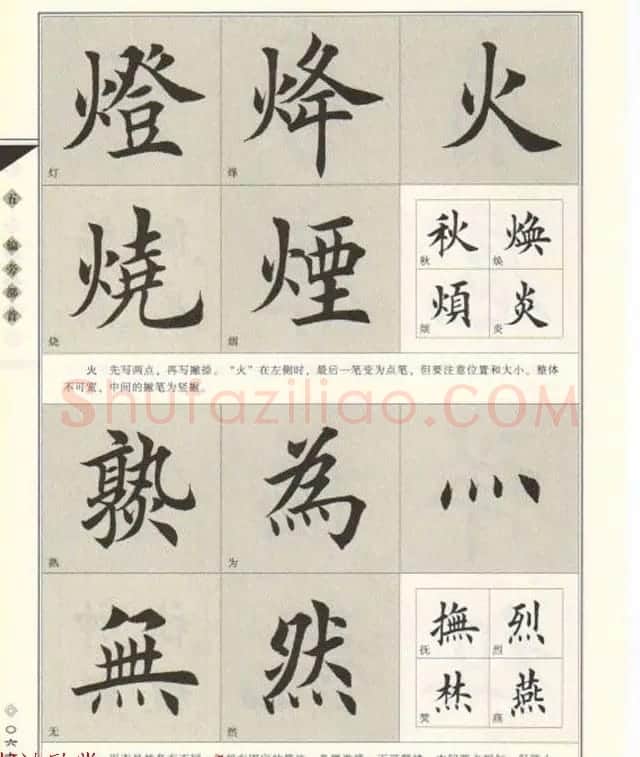 燈 烽 火
灯 烽
燒 煙
烧 烟
秋 焕
秋 焕
煩 炎
烦 炎
火 先写两点，再写撇捺。“火”在左侧时，最后一笔变为点笔，但要注意位置和大小。整体
不可宽，中间的撇笔为竖撇。
Shufaziliao.COM
熟 為 灬
熟 为
無 然
无 然
撫 烈
抚 烈
燕
燕
五 偏旁部首